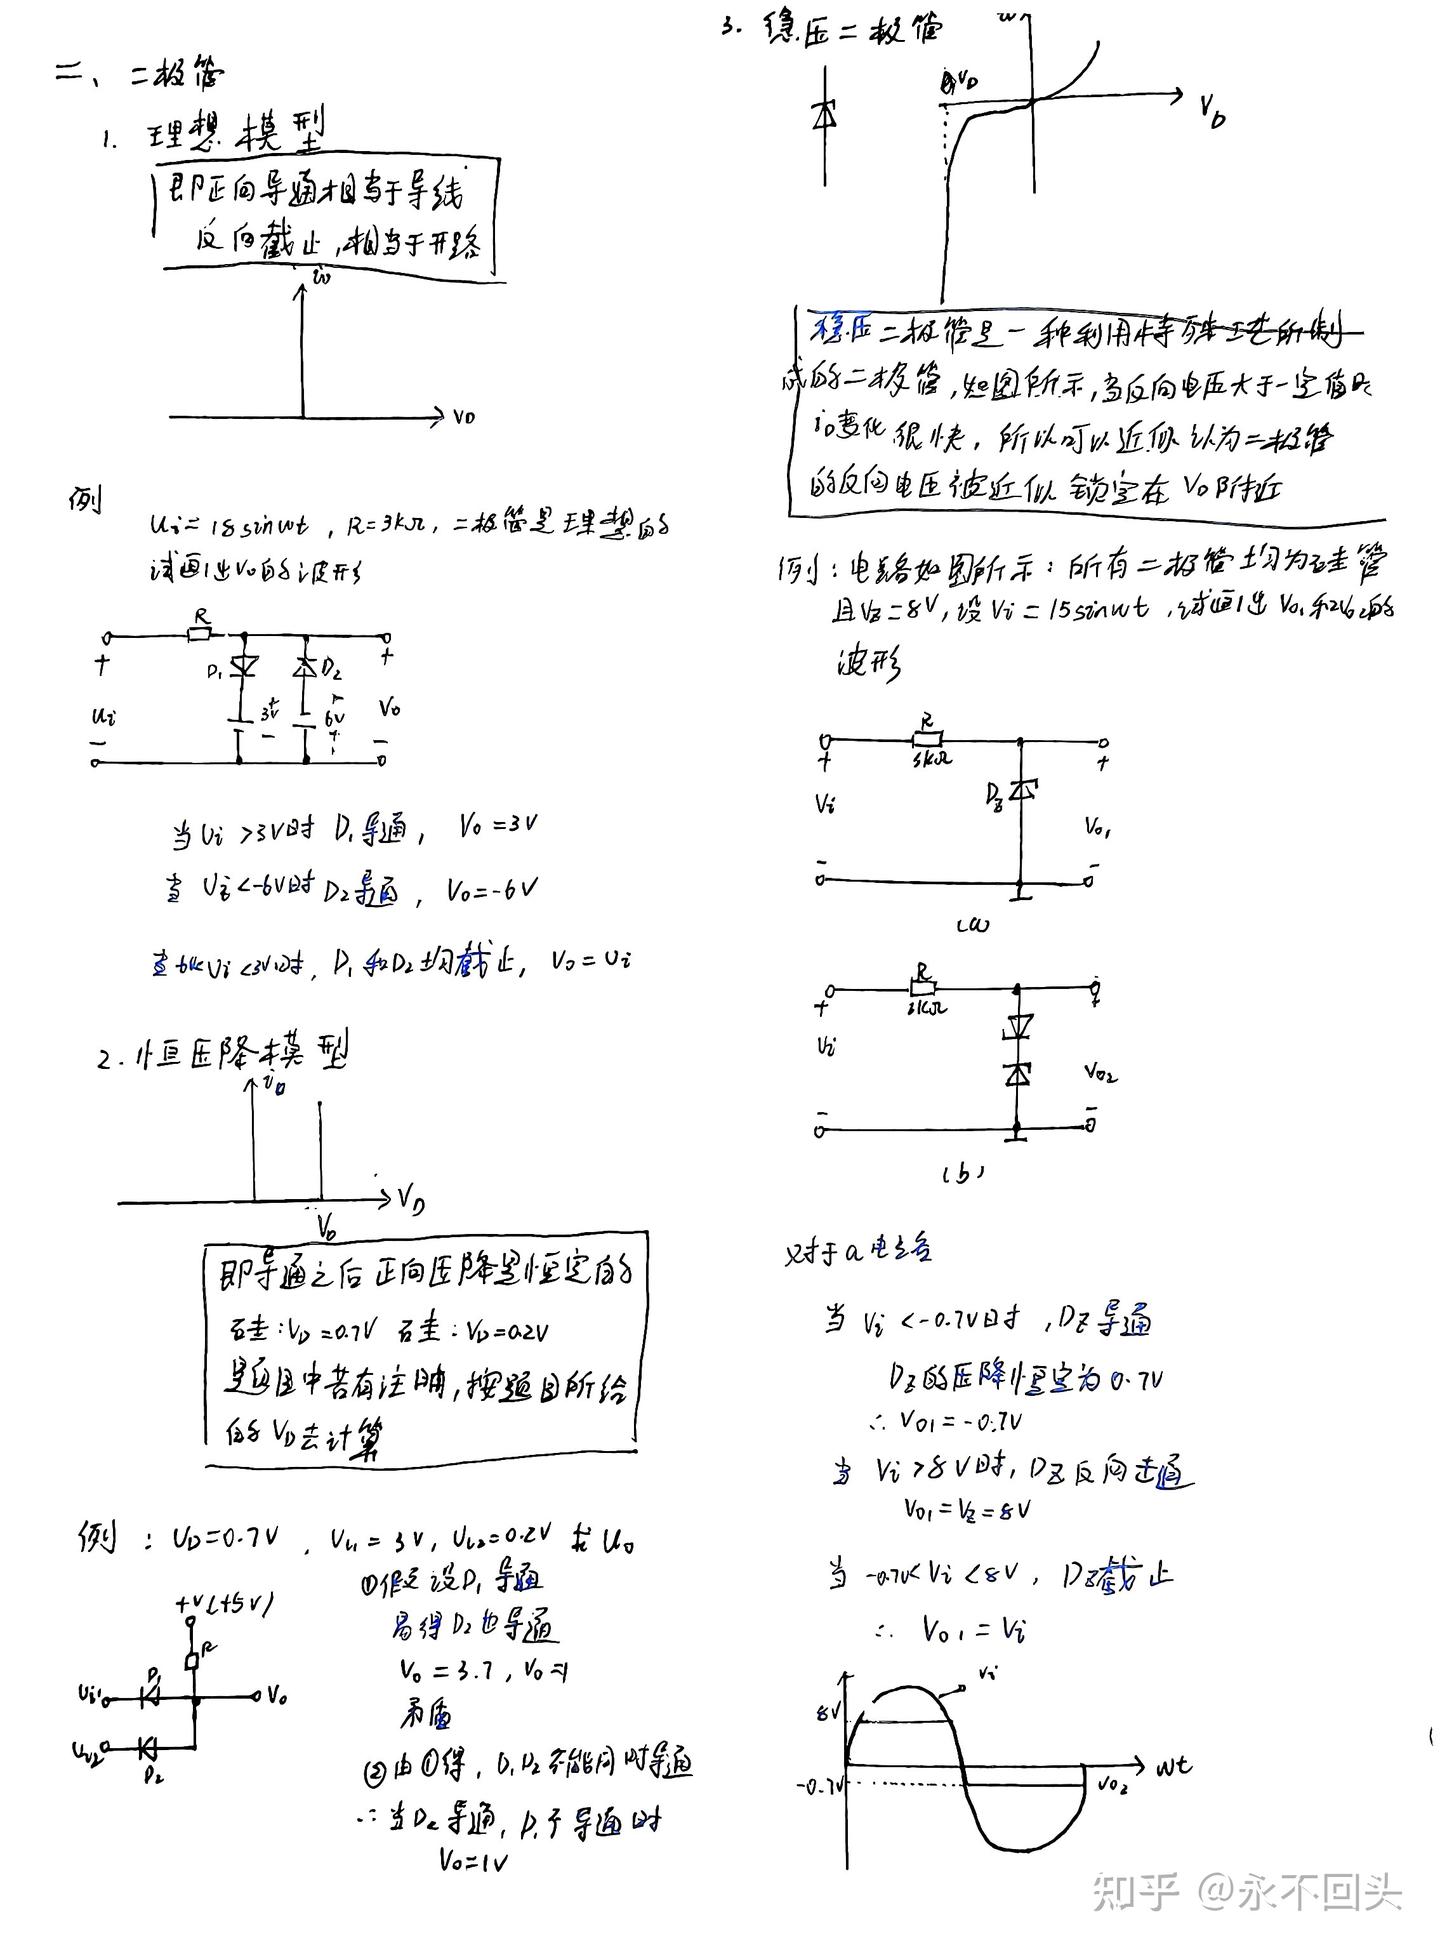 二、二极管
1. 理想模型
即正向导通相当于导线
反向截止,相当于开路
iD
VD
例
Ui=18sinωt,R=3KΩ,二极管是理想的
试画出Vo的波形
R
+ D1 D2 +
Ui 3V 6V Vo
当Ui>3V时 D1导通, Vo=3V
当 Ui<-6V时 D2导通, Vo=-6V
当-6V<Ui<3V时, D1和D2均截止, Vo=Ui
2.恒压降模型
iD
VD
VD
即导通之后正向压降是恒定的
硅:VD=0.7V 硅:VD=0.2V
题目中若有注明,按题目所给
的VD去计算
例:UD=0.7V, Ui1=3V, Ui2=0.2V 求Uo
①假设D1导通
易得D2也导通
Vo=3.7, Vo=1
矛盾
②由①得, D1D2不能同时导通
∴当D2导通, D1不导通时
Vo=1V
+V(+5V)
R
Ui1 D1 Vo
Ui2 D2
3. 稳压二极管
VD
VD
稳压二极管是一种利用特殊工艺所制
成的二极管,如图所示,当反向电压大于一定值时
iD变化很快,所以可以近似认为二极管
的反向电压被近似锁定在VD附近
例:电路如图所示:所有二极管均为硅管
且VZ=8V,设Vi=15sinωt,试画出Vo1和Vo2的
波形
R
3KΩ
+ +
Vi DZ Vo1
- -
(a)
R
3KΩ
+ +
Vi Vo2
- -
(b)
对于a电路
当 Vi<-0.7V时,DZ导通
DZ的压降恒定为0.7V
∴ Vo1=-0.7V
当 Vi>8V时,DZ反向击通
Vo1=VZ=8V
当-0.7V<Vi<8V, DZ截止
∴ Vo1=Vi
Vi
8V
-0.7V
Vo2
Wt
知乎 @永不回头